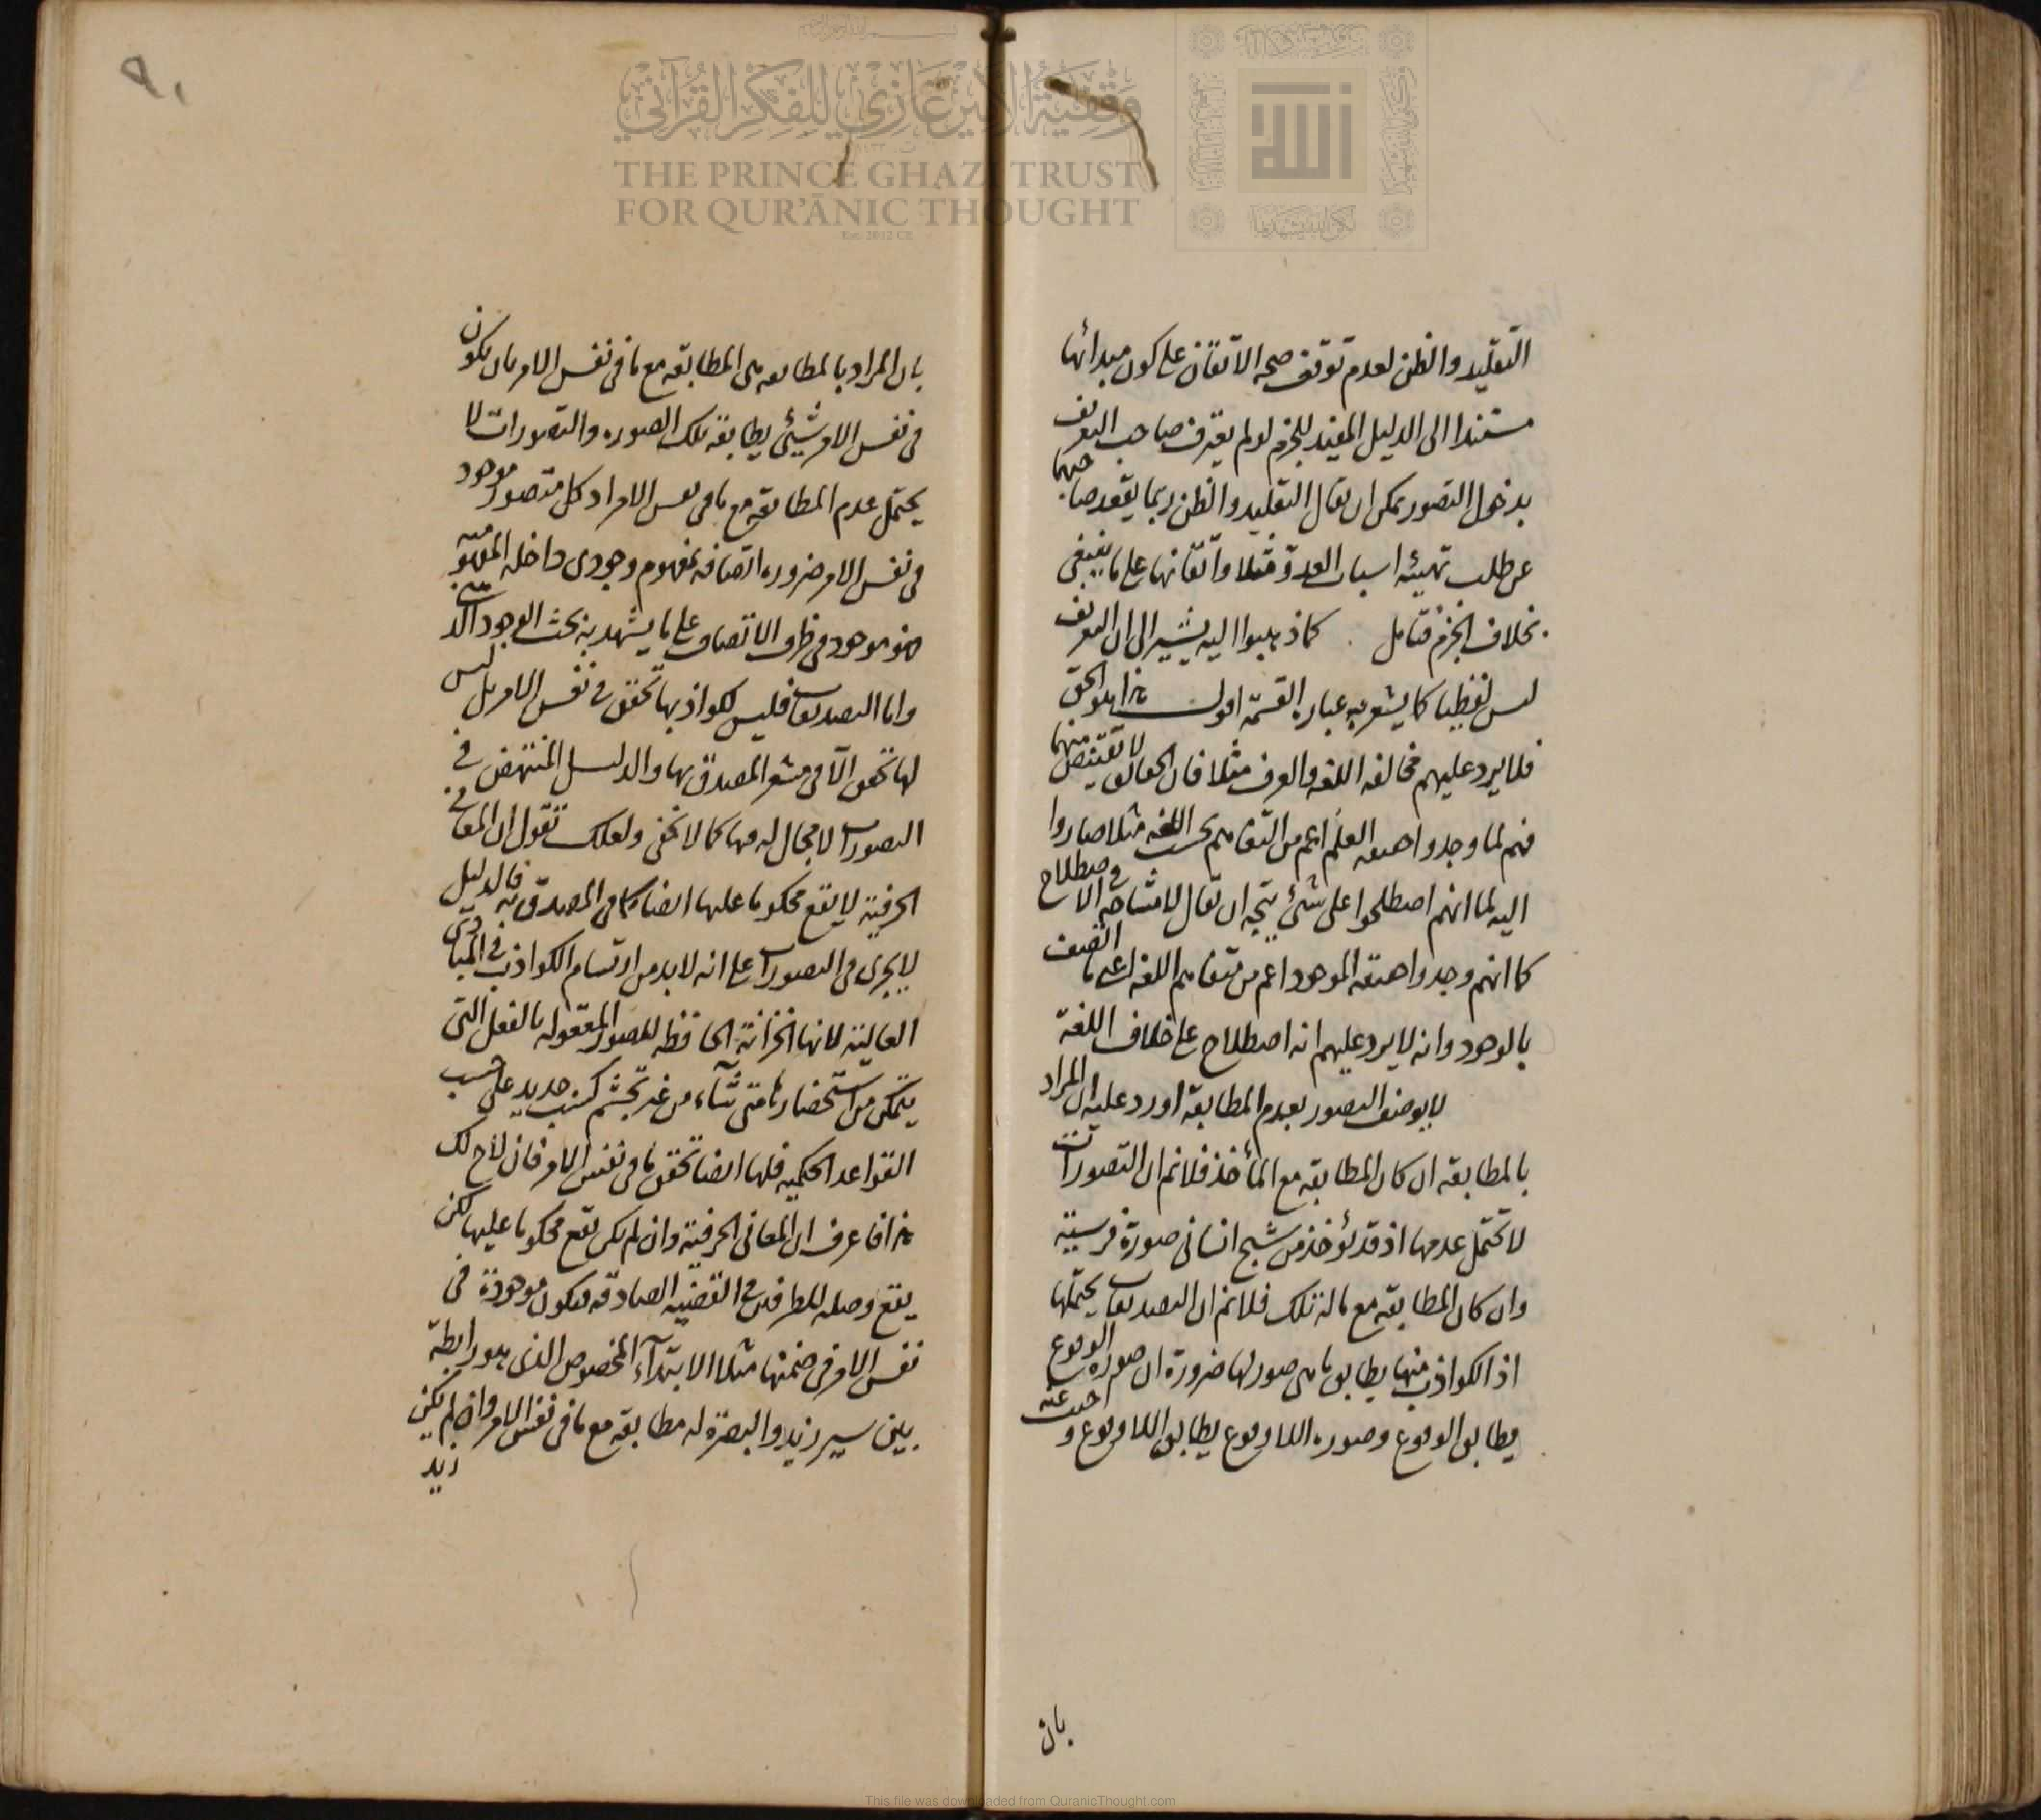 وقفية الأمير غازي للفكر القرآني
THE PRINCE GHAZI TRUST
FOR QUR'ĀNIC THOUGHT
Est. 2012 CE
الله
التقليد والظن لعدم توقف صحه الاتقان على كون مبدائها
مستندا الى الدليل المفيد للجزم لو لم يعترف صاحب التعريف
بدخول التصور يمكن ان يقال التقليد والظن ربما يقعد صاحبهما
عن طلب تهيئه اسباب العدة مثلا واتقانها على ما ينبغي
بخلاف الجزم فتامل كما ذهبوا اليه يشير الى ان التعريف
ليس لفظيا كما يشعر به عباره القسمة اقول هذا هو الحق
فلا يرد عليهم مخالفه اللغه والعرف مثلا فان الحقائق لا تقتنص منهما
فهم لما وجدوا حقيقه العلم اعم من التفاهم بحسب اللغه مثلا صاروا
اليه لما انهم اصطلحوا على شئ يتجه ان يقال لا مشاحه في الاصطلاح
كما انهم وجدوا حقيقه الموجود اعم من متفاهم اللغه اعنى ما اتصف
بالوجود وانه لا يرد عليهم انه اصطلاح على خلاف اللغة
لا يوصف التصور بعدم المطابقة اورد عليه ان المراد
بالمطابقه ان كان المطابقه مع المأخذ فلانم ان التصورات
لا تحتمل عدمها اذ قد يؤخذ من شبح انسانى صورة فرسية
وان كان المطابقه مع ماله تلك فلانم ان التصديقات يحتملها
اذ الكواذب منها يطابق ما هى صور لها ضرورة ان صورة الوقوع
يطابق الوقوع وصوره اللاوقوع يطابق اللاوقوع و احيب عنه
بان
٩٠
بان المراد بالمطابقه هى المطابقه مع ما فى نفس الامر بان يكون
فى نفس الامر شيئ يطابقه تلك الصوره والتصورات لا
يحتمل عدم المطابقه مع ما فى نفس الامر اذ كل متصور موجود
فى نفس الامر ضروره اتصافه بمفهوم وجودى داخله المفهومية
فهو موجود فى ظرف الاتصاف على ما يشهد به بحث الوجود الذهنى
واما التصديقات فليس لكواذبها تحقق فى نفس الامر بل ليس
لها تحقق الا فى مشعر المصدق بها والدليل المنتهض في
التصورات لا مجال له فيها كما لا يخفى ولعلك تقول ان المعانى
الحرفية لا يقع محكوما عليها ايضا كما فى المصدق به فالدليل
لا يجرى فى التصورات على انه لا بد من ارتسام الكواذب فى المبادى
العالية لانها الخزانة الحافظه للصور المعقوله بالفعل التى
يتمكن من استحضارها متى شاء من غير تجشم كسب جديد على حسب
القواعد الحكميه فلها ايضا تحقق ما فى نفس الامر فان لاح لك
هذا فاعرف ان المعانى الحرفية وان لم يكن تقع محكوما عليها لكن
يقع وصله للطرفين فى القضيه الصادقه فيكون موجودة فى
نفس الامر فى ضمنها مثلا الابتدآء المخصوص الذى هو رابطة
بين سير زيد والبصرة له مطابقه مع ما فى نفس الامر وان لم يكن
زيد
This file was downloaded from QuranicThought.com